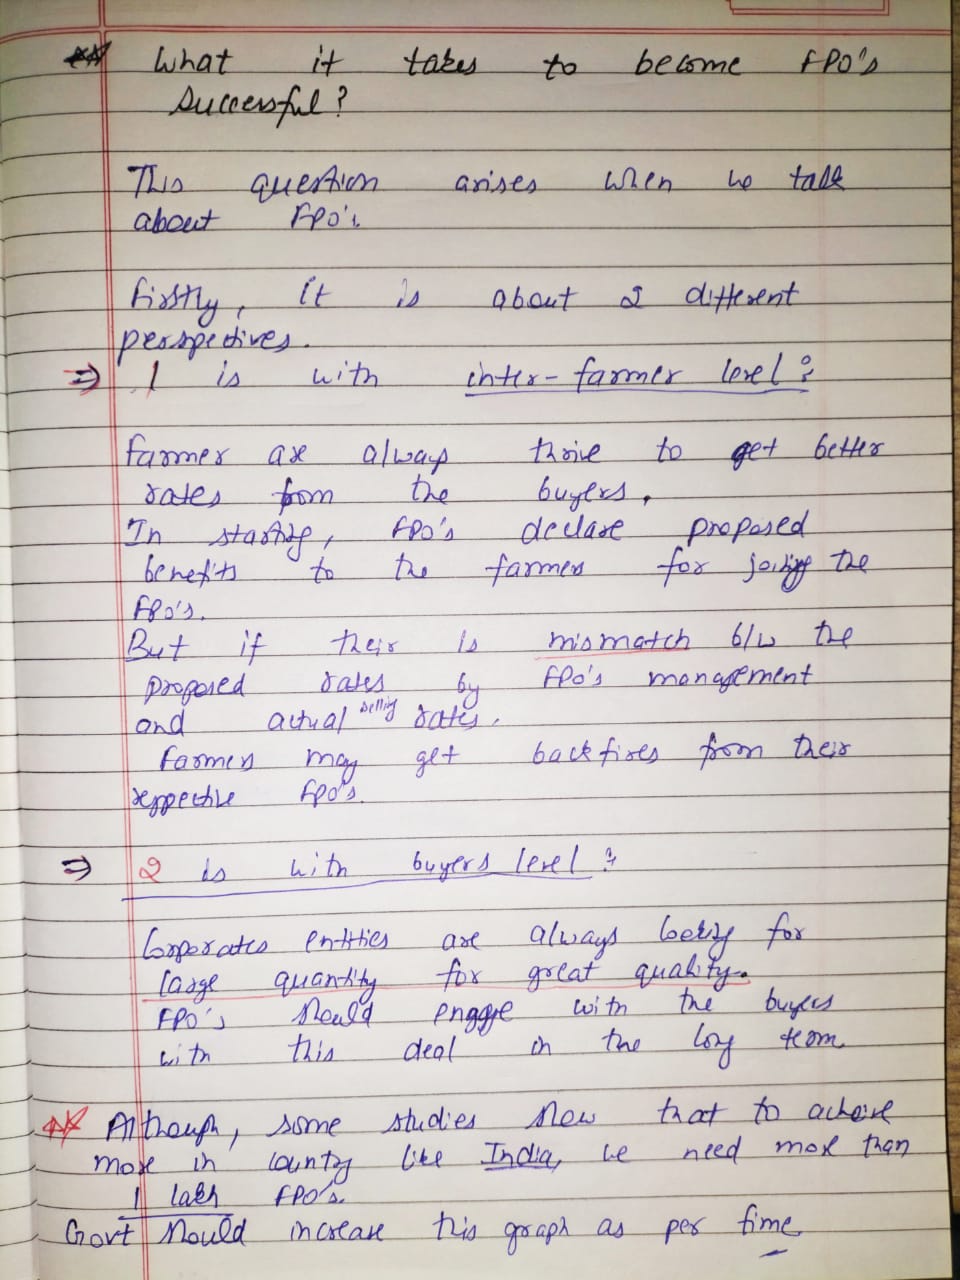 What it takes to become FPO's
Successful?
This question arises when we talk
about FPO's.
Firstly, it is about 2 different
perspectives.
⇒ 1 is with inter-farmer level:
Farmer are always thrive to get better
rates from the buyers.
In starting, FPO's declare proposed
benefits to the farmers for joining the
FPO's.
But if their is mismatch b/w the
proposed rates by FPO's management
and actual selling rates.
Farmers may get backfires from their
respective FPO's.
⇒ 2 is with buyers level:
Corporates entities are always looking for
large quantity for great quality.
FPO's should engage with the buyers
with this deal in the long term.
Although, some studies show that to acheive
more in country like India, we need more than
1 lakh FPO's.
Govt should increase this graph as per time